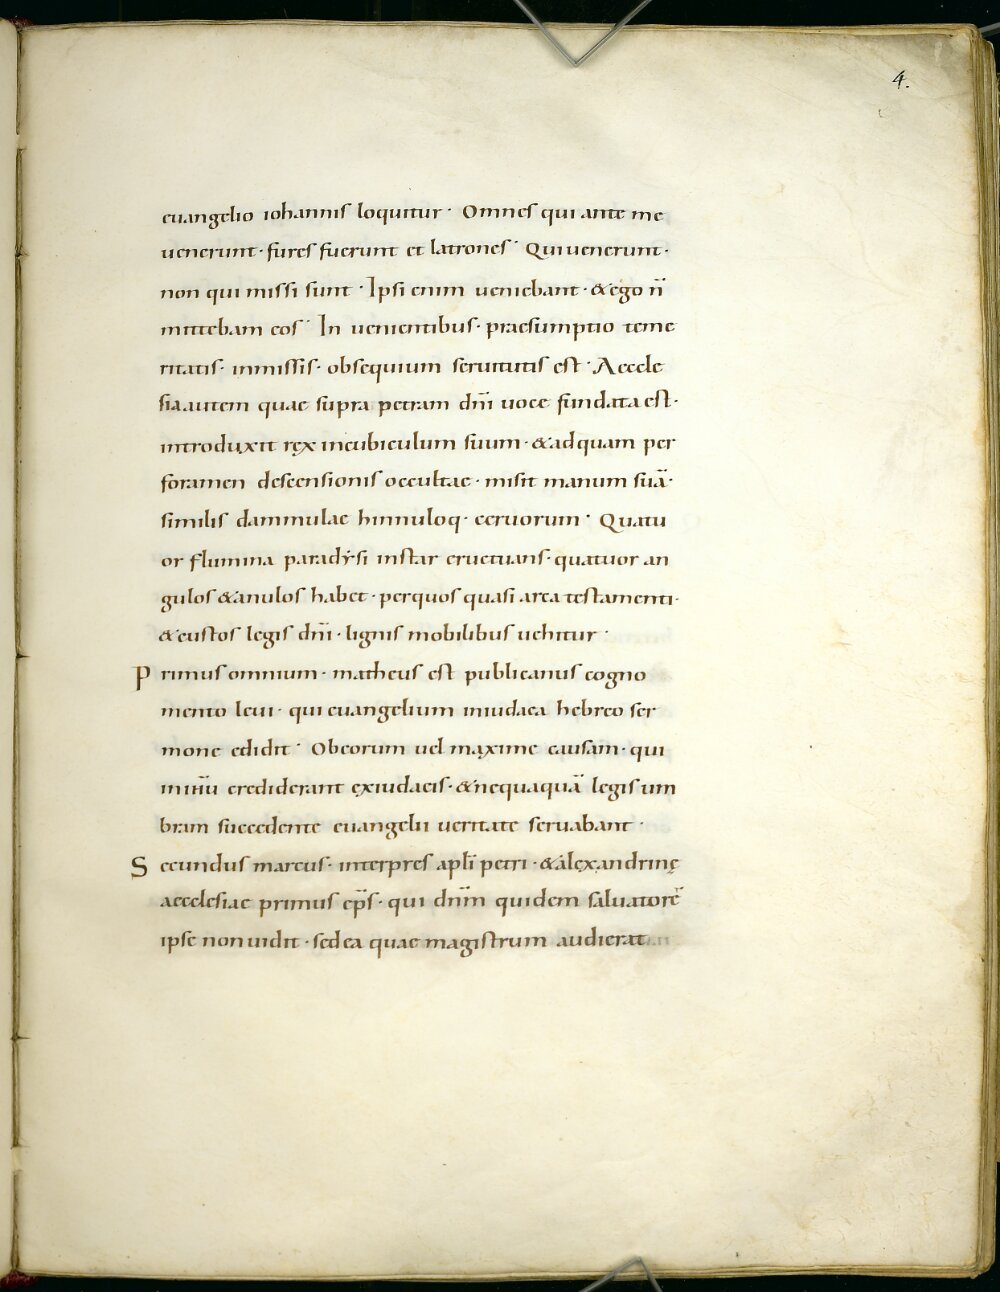 4.
euangelio iohannis loquitur· Omnes qui ante me
uenerunt· fures fuerunt et latrones· Qui uenerunt·
non qui missi sunt· Ipsi enim ueniebant· & ego n̄
mittebam eos· In uenientibus· praesumptio teme
ritatis· in missis· obsequium seruitutis est· Aeccle
sia autem quae supra petram dn̄i uoce fundata est·
introduxit rex in cubiculum suum· & ad quam per
foramen descensionis occultae· misit manum suā·
similis dammulae hinnuloq· ceruorum· Quatu
or flumina paradysi instar eructuans· quatuor an
gulos & anulos habet· per quos quasi arca testamenti·
& custos legis dn̄i· lignis mobilibus uehitur·
Primus omnium· matheus est publicanus cogno
mento leui· qui euangelium in iudaea hebreo ser
mone edidit· Ob eorum uel maxime causam· qui
in ih̄u crediderant ex iudaeis· & nequaquā legis um
bram succedente euangelii ueritate seruabant·
Secundus marcus· interpres apl̄i petri· & alexandrinę
aecclesiae primus ep̄s· qui dn̄m quidem saluatorē
ipse non uidit· sed ea quae magistrum audierat